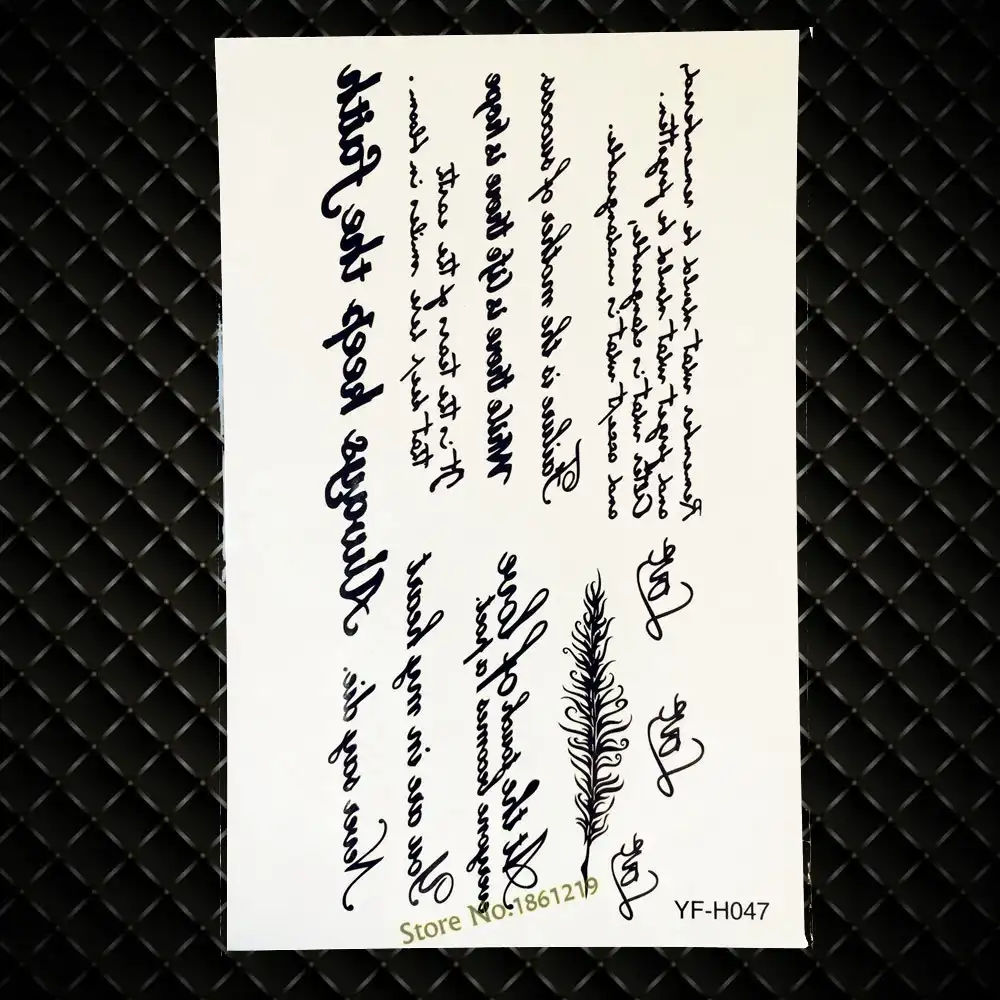 Remember what should be remembered,
and forget what should be forgotten.
Alter what is changeable,
and accept what is unchangeable.
Failure is the mother of success
While there is life there is hope
It is the tears of the earth
that keep her smiles in bloom.
Always keep the Faith
Love
Love
Love
At the touch of love
everyone becomes a poet.
You are in my heart
Never say die.
Store No:1861219
YF-H047